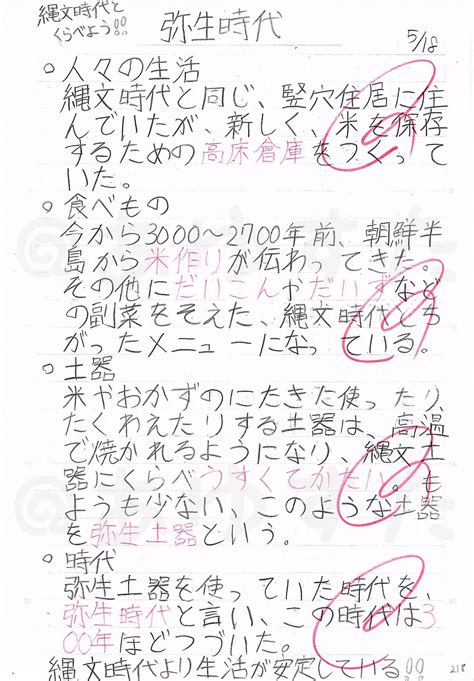 縄文時代と
くらべよう!!
弥生時代
5/18
○人々の生活
縄文時代と同じ、竪穴住居に住
んでいたが、新しく、米を保存
するための高床倉庫をつくって
いた。
○食べもの
今から3000〜2700年前、朝鮮半
島から米作りが伝わってきた。
その他にだいこんやだいずなど
の副菜をそえた、縄文時代とち
がったメニューになっている。
○土器
米やおかずのにたきた使ったり、
たくわえたりする土器は、高温
で焼かれるようになり、縄文土
器にくらべうすくてかたい。も
ようも少ない、このような土器
を弥生土器という。
○時代
弥生土器を使っていた時代を、
弥生時代と言い、この時代は3
00年ほどつづいた。
縄文時代より生活が安定している!!
218